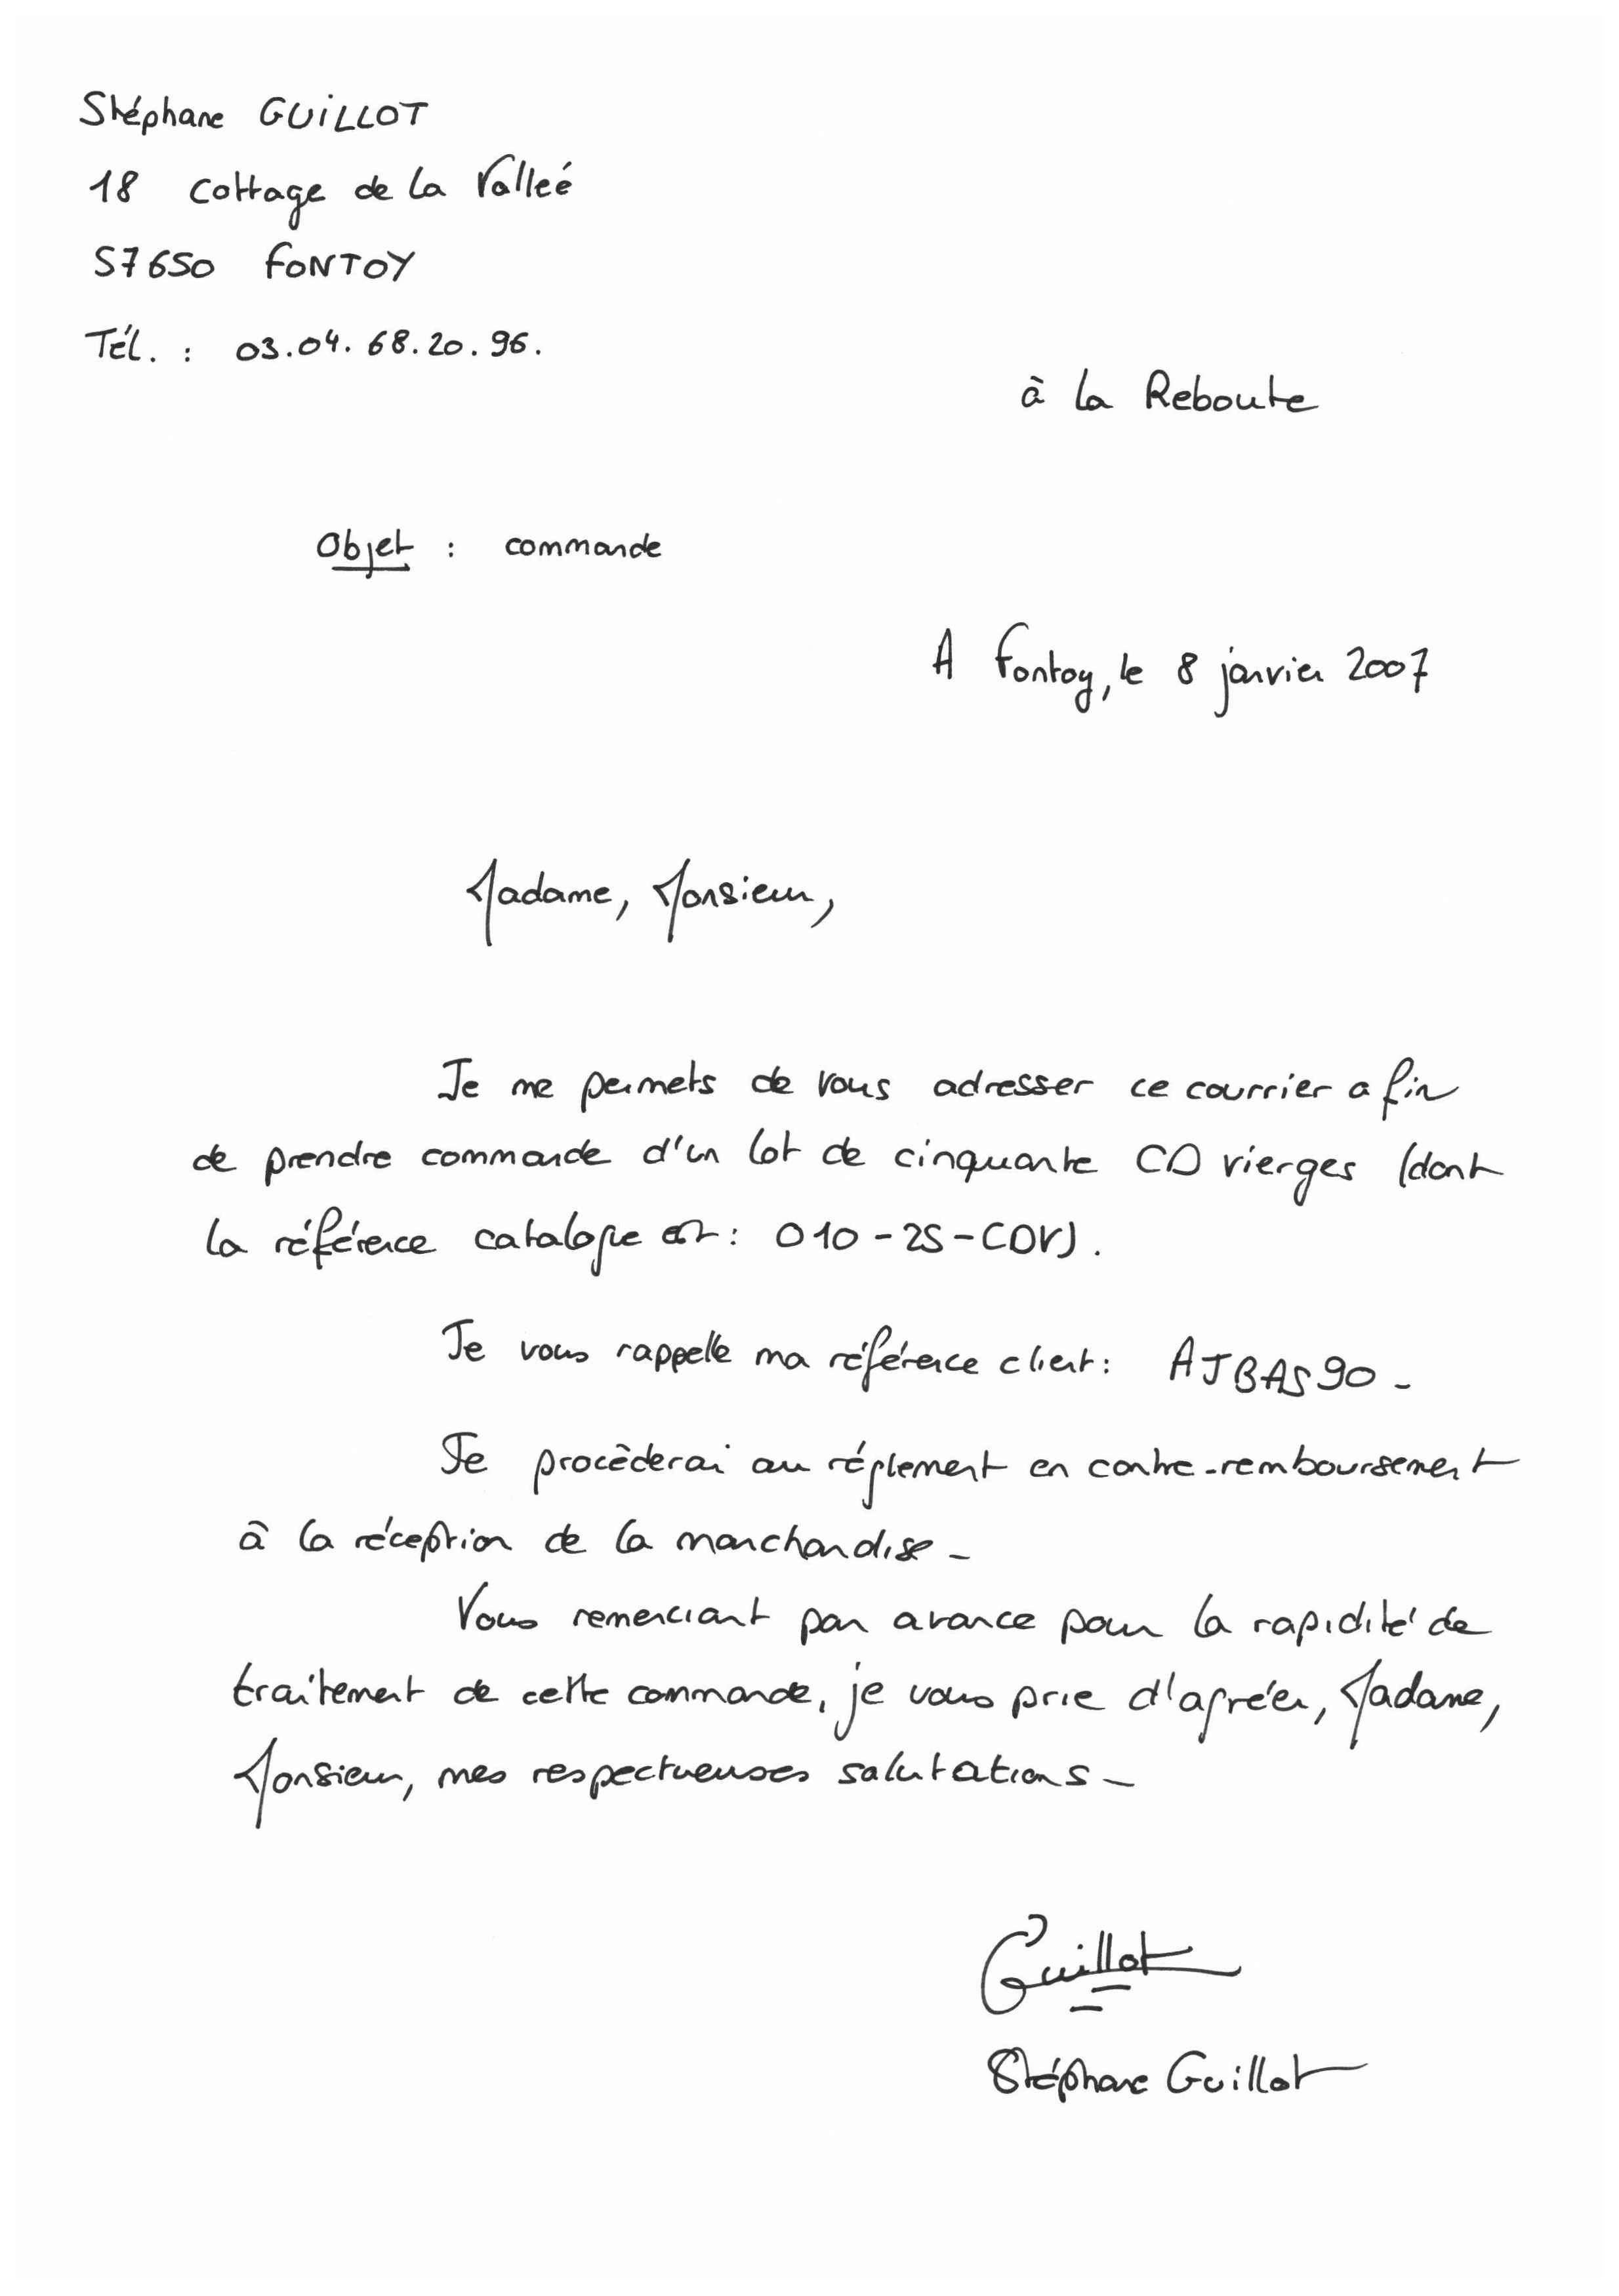 Stéphane GUILLOT
18 Cottage de la Valleé
57650 FONTOY
Tél. : 03.04.68.20.96.
à la Reboute
Objet : commande
A Fontoy, le 8 janvier 2007
Madame, Monsieur,
Je me permets de vous adresser ce courrier afin
de prendre commande d'un lot de cinquante CD vierges (dont
la référence catalogue est : 010-25-CDV).
Je vous rappelle ma référence client : AJBAS90-
Je procèderai au réglement en contre-remboursement
à la réception de la marchandise-
Vous remerciant par avance pour la rapidité de
traitement de cette commande, je vous prie d'agréer, Madame,
Monsieur, mes respectueuses salutations-
Guillot
Stéphane Guillot